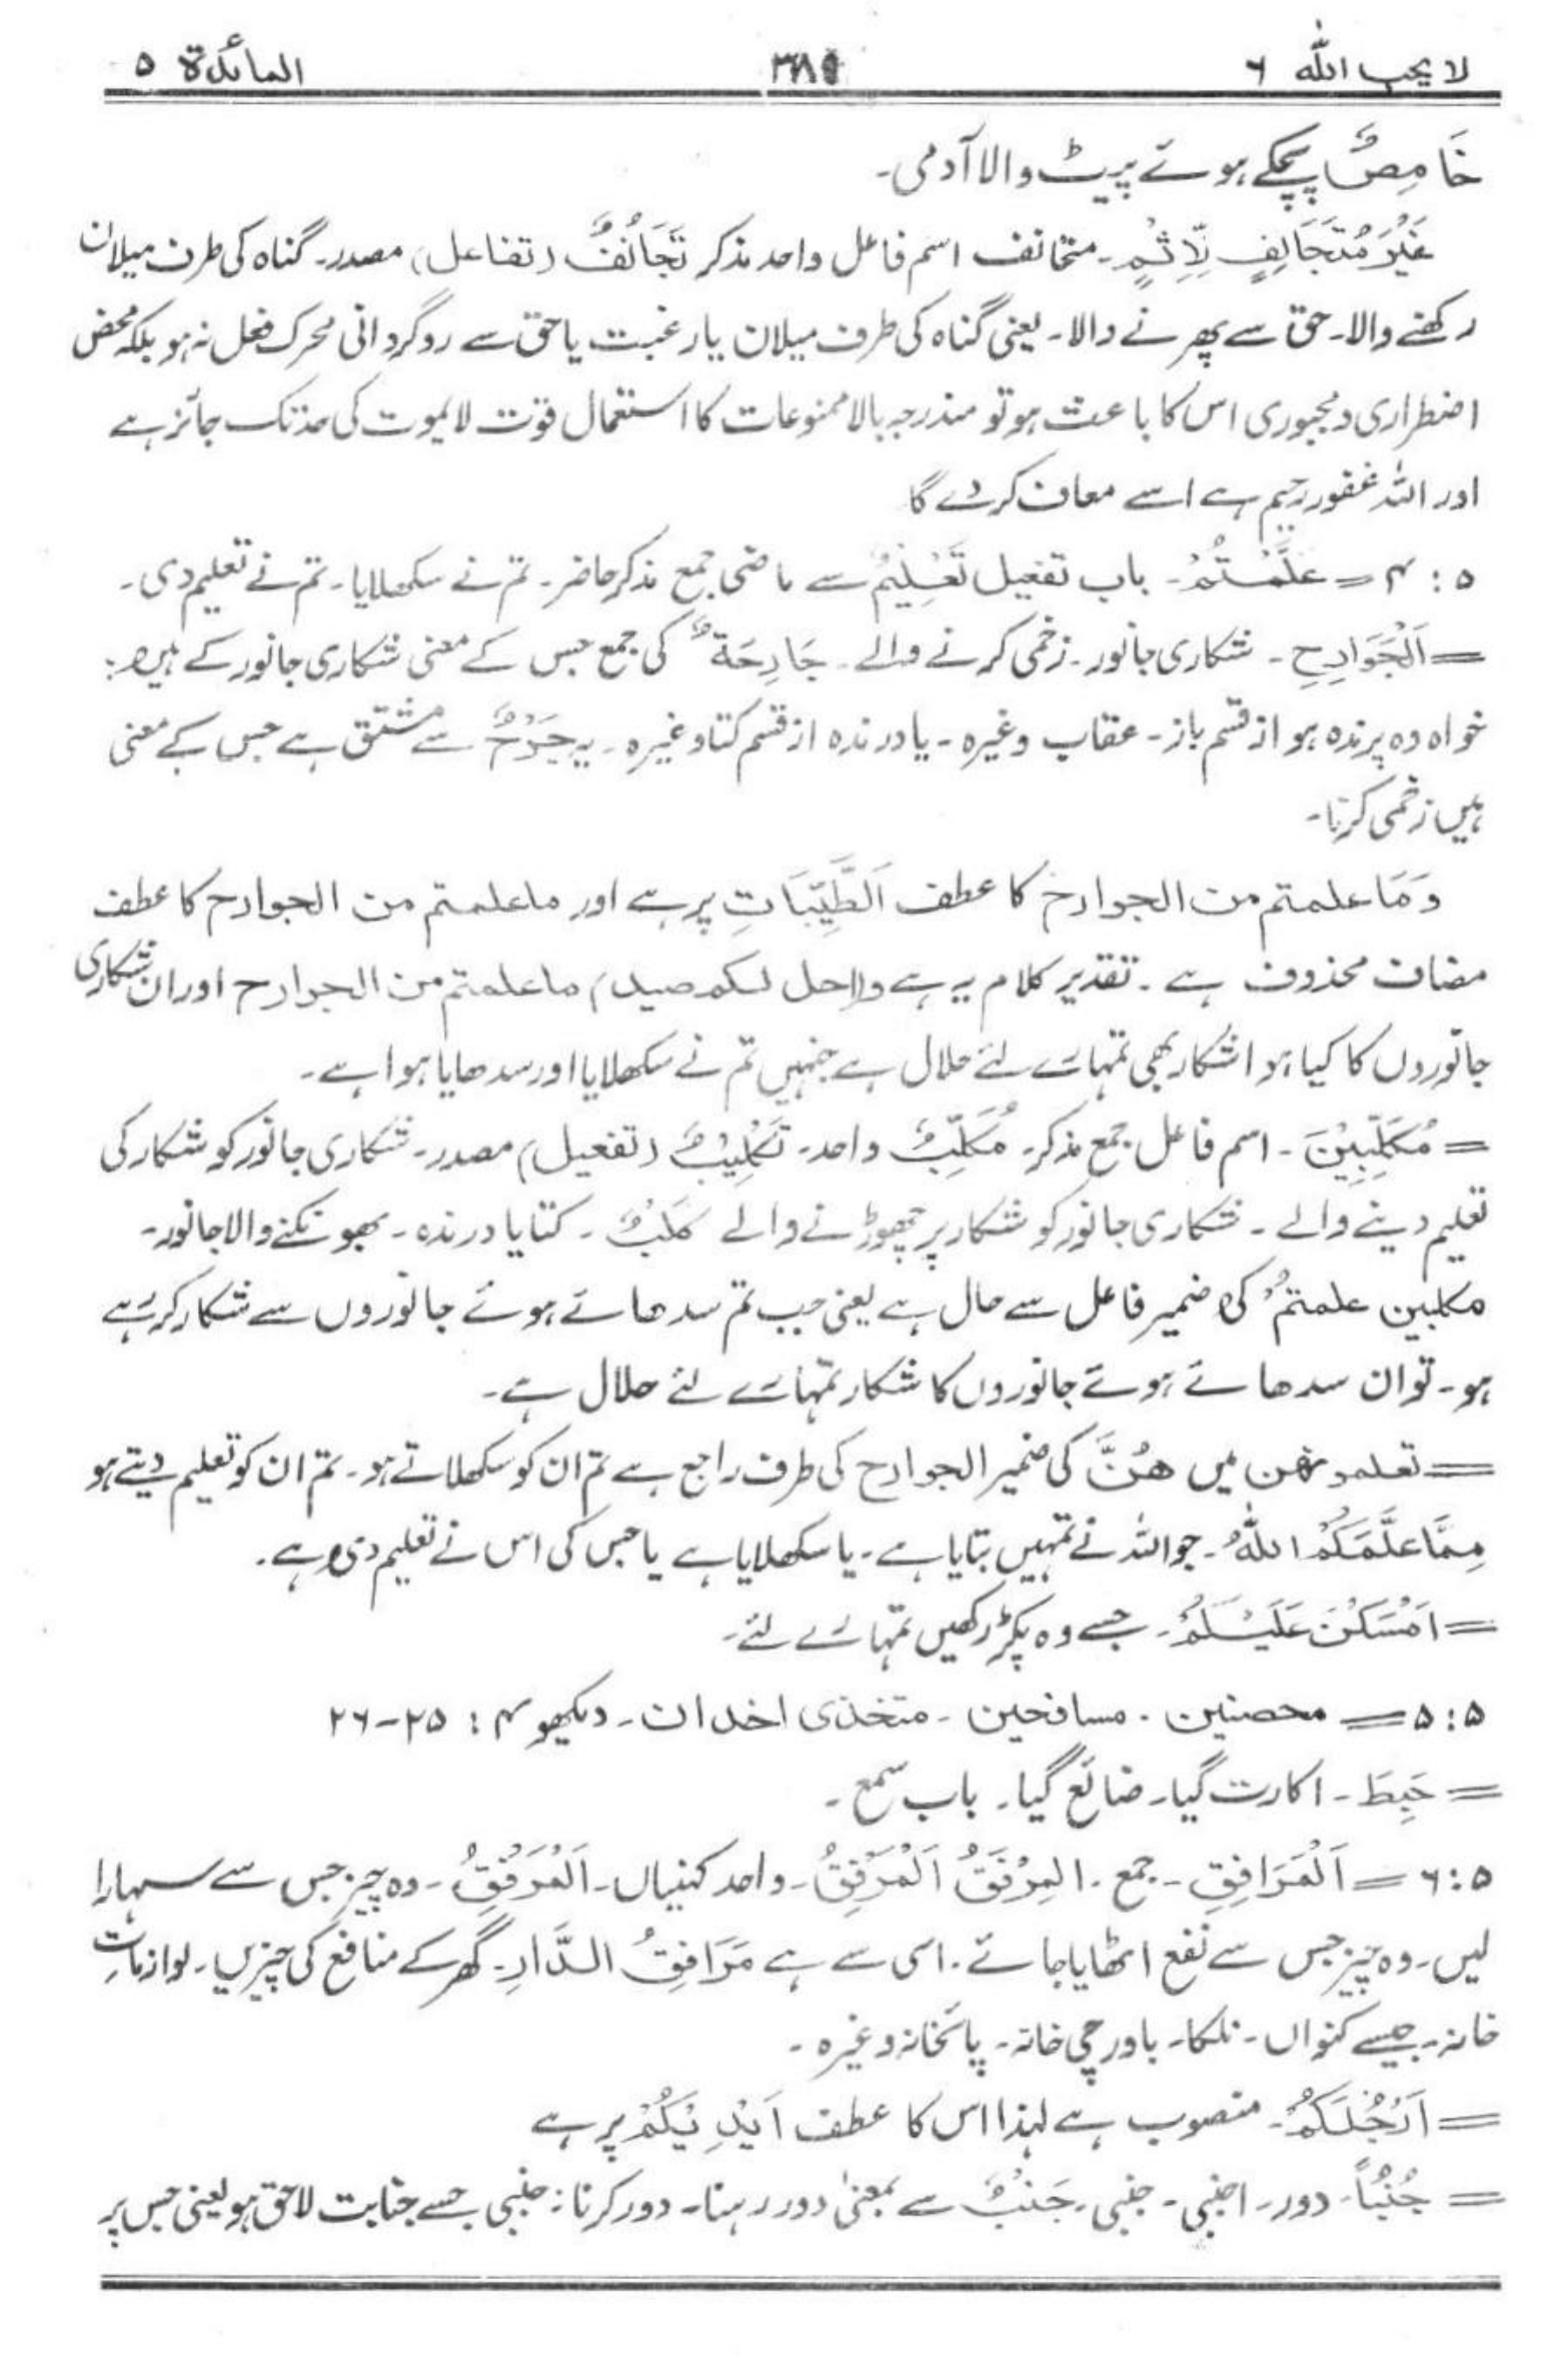 لا یحب اللہ ۶ ۳۸۵ المائدۃ ۵
خَامِصٌ پچکے ہوئے پیٹ والا آدمی۔
غَیْرَ مُتَجَانِفٍ لِّاِثْمٍ۔ متجانف اسم فاعل واحد مذکر تَجَانُفٌ (تفاعل) مصدر۔ گناہ کی طرف میلان
رکھنے والا۔ حق سے پھرنے والا۔ یعنی گناہ کی طرف میلان یا رغبت یا حق سے روگردانی محرک فعل نہ ہو بلکہ محض
اضطراری و مجبوری اس کا باعث ہو تو مندرجہ بالا ممنوعات کا استعمال قوت لا یموت کی حد تک جائز ہے
اور اللہ غفور رحیم ہے اسے معاف کر دے گا
۵ : ۴ = عَلَّمْتُمْ۔ باب تفعیل تَعْلِیْمٌ سے ماضی جمع مذکر حاضر۔ تم نے سکھلایا۔ تم نے تعلیم دی۔
= اَلْجَوَارِحِ۔ شکاری جانور۔ زخمی کرنے والے۔ جَارِحَۃٌ کی جمع جس کے معنی شکاری جانور کے ہیں:
خواہ وہ پرندہ ہو از قسم باز۔ عقاب وغیرہ۔ یا درندہ از قسم کتا وغیرہ۔ یہ جَرْحٌ سے مشتق ہے جس کے معنی
ہیں زخمی کرنا۔
وَمَا علمتم من الجوارح کا عطف اَلطَّیِّبَاتِ پر ہے اور ما علمتم من الجوارح کا عطف
مضاف محذوف ہے۔ تقدیر کلام یہ ہے و(احل لکم صید) ما علمتم من الجوارح اور ان شکاری
جانوروں کا کیا ہوا شکار بھی تمہارے لئے حلال ہے جنہیں تم نے سکھلایا اور سدھایا ہوا ہے۔
= مُکَلِّبِیْنَ۔ اسم فاعل جمع مذکر۔ مُکَلِّبٌ واحد۔ تَکْلِیْبٌ (تفعیل) مصدر۔ شکاری جانور کو شکار کی
تعلیم دینے والے۔ شکاری جانور کو شکار پر چھوڑنے والے کَلْبٌ۔ کتا یا درندہ۔ بھونکنے والا جانور۔
مکلبین علمتمْ کی ضمیر فاعل سے حال ہے یعنی جب تم سدھائے ہوئے جانوروں سے شکار کر رہے
ہو۔ تو ان سدھائے ہوئے جانوروں کا شکار تمہارے لئے حلال ہے۔
= تعلمونھن میں ھُنَّ کی ضمیر الجوارح کی طرف راجع ہے تم ان کو سکھلاتے ہو۔ تم ان کو تعلیم دیتے ہو
مِمَّا عَلَّمَکُمُ اللّٰہُ۔ جو اللہ نے تمہیں بتایا ہے۔ یا سکھلایا ہے یا جس کی اس نے تعلیم دی ہے۔
= اَمْسَکْنَ عَلَیْکُمْ۔ جسے وہ پکڑ رکھیں تمہارے لئے۔
۵ : ۵ = محصنین۔ مسافحین۔ متخذی اخدان۔ دیکھو ۴ : ۲۵-۲۶
= حَبِطَ۔ اکارت گیا۔ ضائع گیا۔ باب سمع۔
۵ : ۶ = اَلْمَرَافِقِ۔ جمع۔ المِرْفَقُ اَلْمَرْفِقُ۔ واحد کہنیاں۔ اَلْمَرْفِقُ۔ وہ چیز جس سے سہارا
لیں۔ وہ چیز جس سے نفع اٹھایا جائے۔ اسی سے ہے مَرَافِقُ الدَّارِ۔ گھر کے منافع کی چیزیں۔ لوازماتِ
خانہ۔ جیسے کنواں۔ نلکا۔ باورچی خانہ۔ پائخانہ وغیرہ۔
= اَرْجُلَکُمْ۔ منصوب ہے لہذا اس کا عطف اَیْدِیَکُمْ پر ہے
= جُنُبًا۔ دور۔ اجنبی۔ جنبی۔ جَنْبٌ سے بمعنیٰ دور رہنا۔ دور کرنا : جنبی جسے جنابت لاحق ہو یعنی جس پر